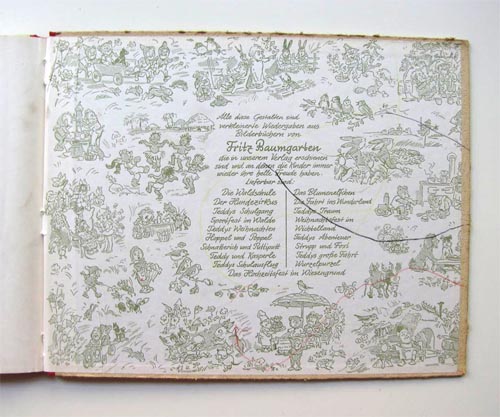 Alle diese Gestalten sind
verkleinerte Wiedergaben aus
Bilderbüchern von
Fritz Baumgarten
die in unserem Verlag erschienen
sind und an denen die Kinder immer
wieder ihre helle Freude haben.
Lieferbar sind:
Die Waldschule
Der Hundezirkus
Teddys Schulgang
Sportfest im Walde
Teddys Weihnachten
Hoppel und Poppel
Schnatterich und
Teddy und Kasperle
Teddys Schulausflug
Das Blumenelfchen
Die Fahrt ins Wunderland
Teddys Traum
Weihnachtsfest im
Wichtelland
Teddys Abenteuer
Strupp und Fips
Teddys große Fahrt
Wurzelpurzel
Das Hochzeitsfest im Wiesengrund